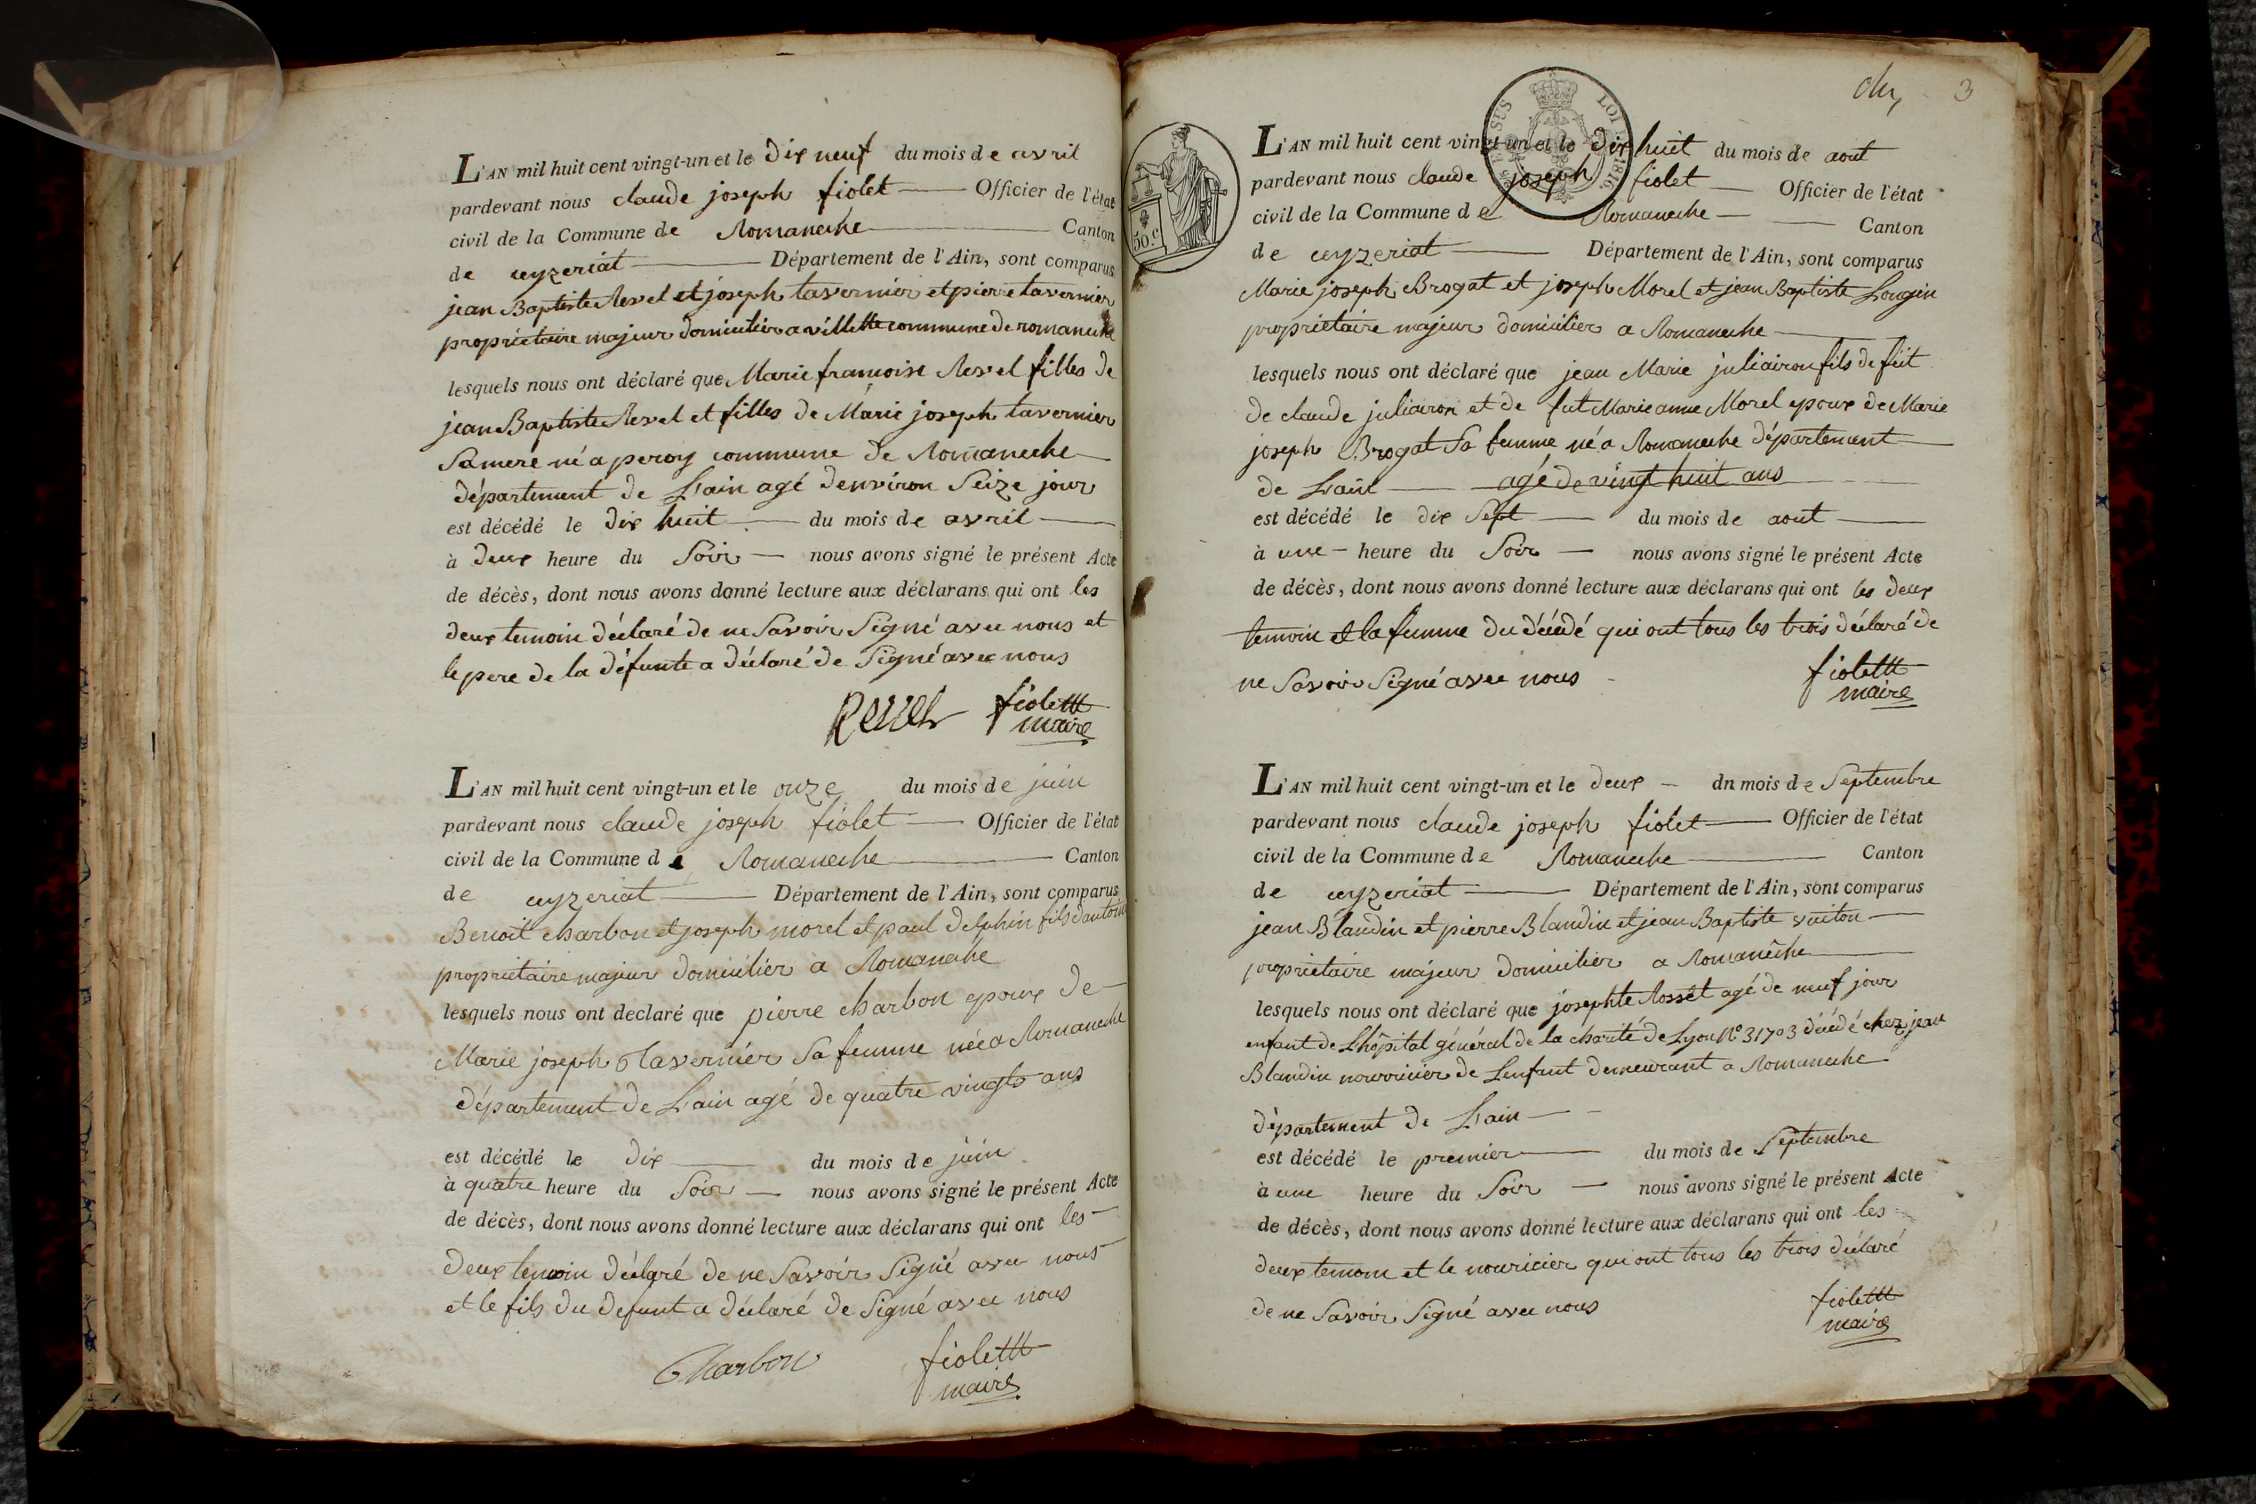 L'AN mil huit cent vingt-un et le dix neuf du mois de avril
pardevant nous claude joseph fiolet Officier de l'état
civil de la Commune de Romaneche Canton
de ceyzeriat Département de l'Ain, sont comparus
jean Baptiste Revel et joseph tavernier et pierre tavernier
proprietaire majeur domicilier a villette commune de romaneche
lesquels nous ont déclaré que Marie francoise Revel filles de
jean Baptiste Revel et filles de Marie joseph tavernier
Sa mere né a peroy commune de Romaneche
département de Lain agé denviron Seize jour
est décédé le dix huit du mois de avril
à deux heure du Soir nous avons signé le présent Acte
de décès, dont nous avons donné lecture aux déclarans qui ont les
deux temoin déclaré de ne Savoir Signé avec nous et
le pere de la défunte a déclaré de Signé avec nous
Revel fiolett
maire
L'AN mil huit cent vingt-un et le onze du mois de juin
pardevant nous claude joseph fiolet Officier de l'état
civil de la Commune de Romaneche Canton
de ceyzeriat Département de l'Ain, sont comparus
Benoit charbon et joseph morel et paul delphin fils dantoine
proprietaire majeur domicilier a Romaneche
lesquels nous ont declaré que pierre charbon epoux de
Marie joseph Tavernier Sa femme née a Romaneche
département de Lain agé de quatre vingts ans
est décédé le dix du mois de juin
à quatre heure du Soir nous avons signé le présent Acte
de décès, dont nous avons donné lecture aux déclarans qui ont les
deux temoin déclaré de ne Savoir Signé avec nous
et le fils du defunt a déclaré de Signé avec nous
Charbon fiolett
maire
3
L'AN mil huit cent vingt-un et le dix huit du mois de aout
pardevant nous claude joseph fiolet Officier de l'état
civil de la Commune de Romaneche Canton
de ceyzeriat Département de l'Ain, sont comparus
50.c
LOI 1816
Marie joseph Brogat et joseph Morel et jean Baptiste Longin
proprietaire majeur domicilier a Romaneche
lesquels nous ont déclaré que jean Marie juliairon fils de fut
de claude juliairon et de fut Marie anne Morel epoux de Marie
joseph Brogat Sa femme né a Romaneche département
de Lain agé de vingt huit ans
est décédé le dix Sept du mois de aout
à une heure du Soir nous avons signé le présent Acte
de décès, dont nous avons donné lecture aux déclarans qui ont les deux
temoin et la femme du décédé qui ont tous les trois déclaré de
ne Savoir Signé avec nous
fiolett
maire
L'AN mil huit cent vingt-un et le deux dn mois de Septembre
pardevant nous claude joseph fiolet Officier de l'état
civil de la Commune de Romaneche Canton
de ceyzeriat Département de l'Ain, sont comparus
jean Blandin et pierre Blandin et jean Baptiste vuiton
proprietaire majeur domicilier a Romanêche
lesquels nous ont déclaré que josephte Rosset agé de neuf jour
enfant de Lhôpital général de la charité de Lyon No 31703 décédé chez jean
Blandin nourricier de Lenfant demeurant a Romaneche
département de Lain
est décédé le premier du mois de Septembre
à une heure du Soir nous avons signé le présent Acte
de décès, dont nous avons donné lecture aux déclarans qui ont les
deux temoin et le nouricier qui ont tous les trois déclaré
de ne Savoir Signé avec nous
fiolett
maire